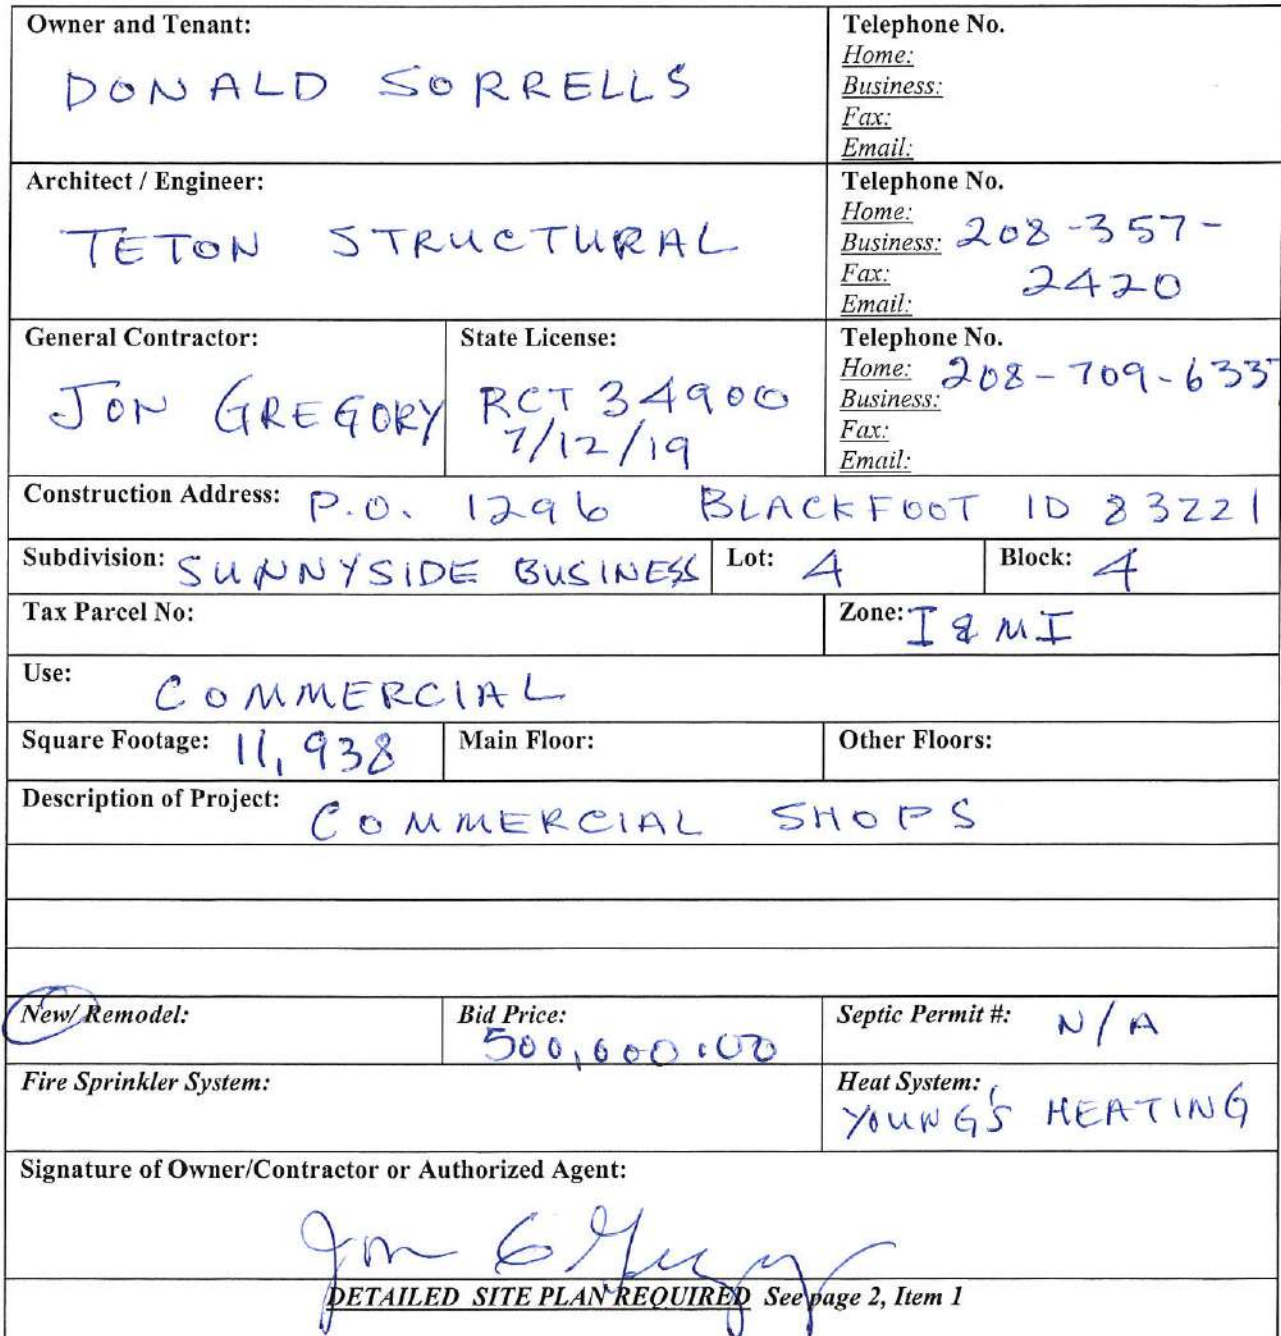 Owner and Tenant:
DONALD SORRELLS
Telephone No.
Home:
Business:
Fax:
Email:
Architect / Engineer:
TETON STRUCTURAL
Telephone No.
Home:
Business: 208-357-
Fax: 2420
Email:
General Contractor:
JON GREGORY
State License:
RCT 34900
7/12/19
Telephone No.
Home: 208-709-633
Business:
Fax:
Email:
Construction Address: P.O. 1296 BLACKFOOT ID 83221
Subdivision: SUNNYSIDE BUSINESS Lot: 4 Block: 4
Tax Parcel No: Zone: I & MI
Use: COMMERCIAL
Square Footage: 11,938 Main Floor: Other Floors:
Description of Project: COMMERCIAL SHOPS
New/ Remodel:
Bid Price:
500,000.00
Septic Permit #: N/A
Fire Sprinkler System:
Heat System:
YOUNG'S HEATING
Signature of Owner/Contractor or Authorized Agent:
DETAILED SITE PLAN REQUIRED See page 2, Item 1